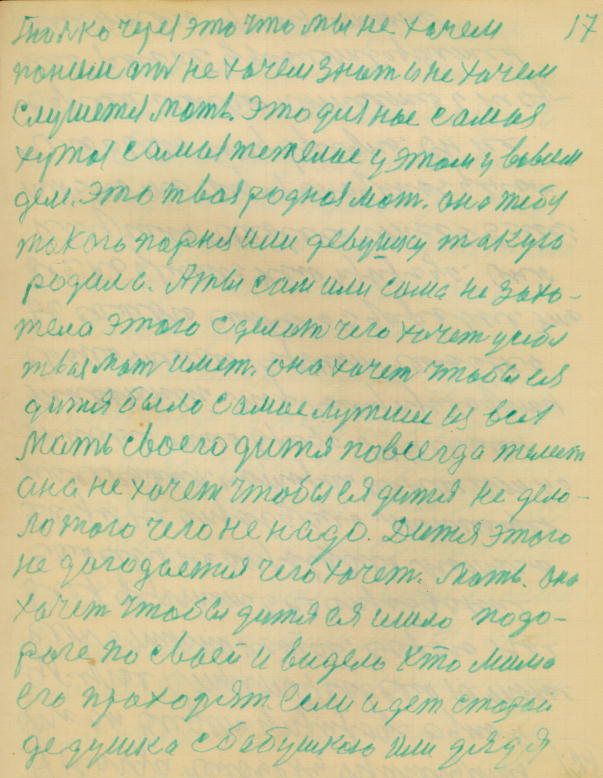 только через это что мы не хочем 17
понимать не хочем знать и не хочем
слушется мать. Это для нас самая
хутоя самые тежелые у этом у вовсем
деле. Это твоя родноя мат. она тебя
такого парня или девушку такую
родила. А ты сам или сама не захо-
тела этого сделат чего хочет у себя
твоя мат имет. она хочет чтобы ея
дитя было самое лутшим из всех
Мать своего дитя повсегда жалеет
она не хочет чтобы ея дитя не дело-
ло того чего не надо. Дитя этого
не догодается чего хочет. Мать. она
хочет чтобы дитя ея ишло по до-
роге по своей и видело кто мимо
его проходят. Если идет старой
дедушка с бабушкою или дядя